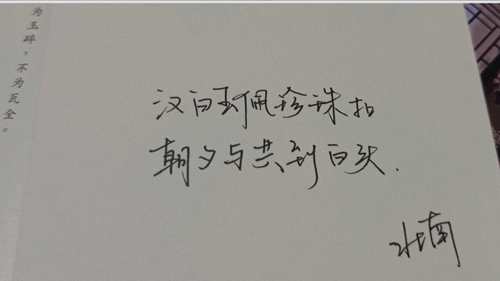 为玉碎，不为瓦全。
汉白玉佩珍珠扣
朝夕与共到白头.